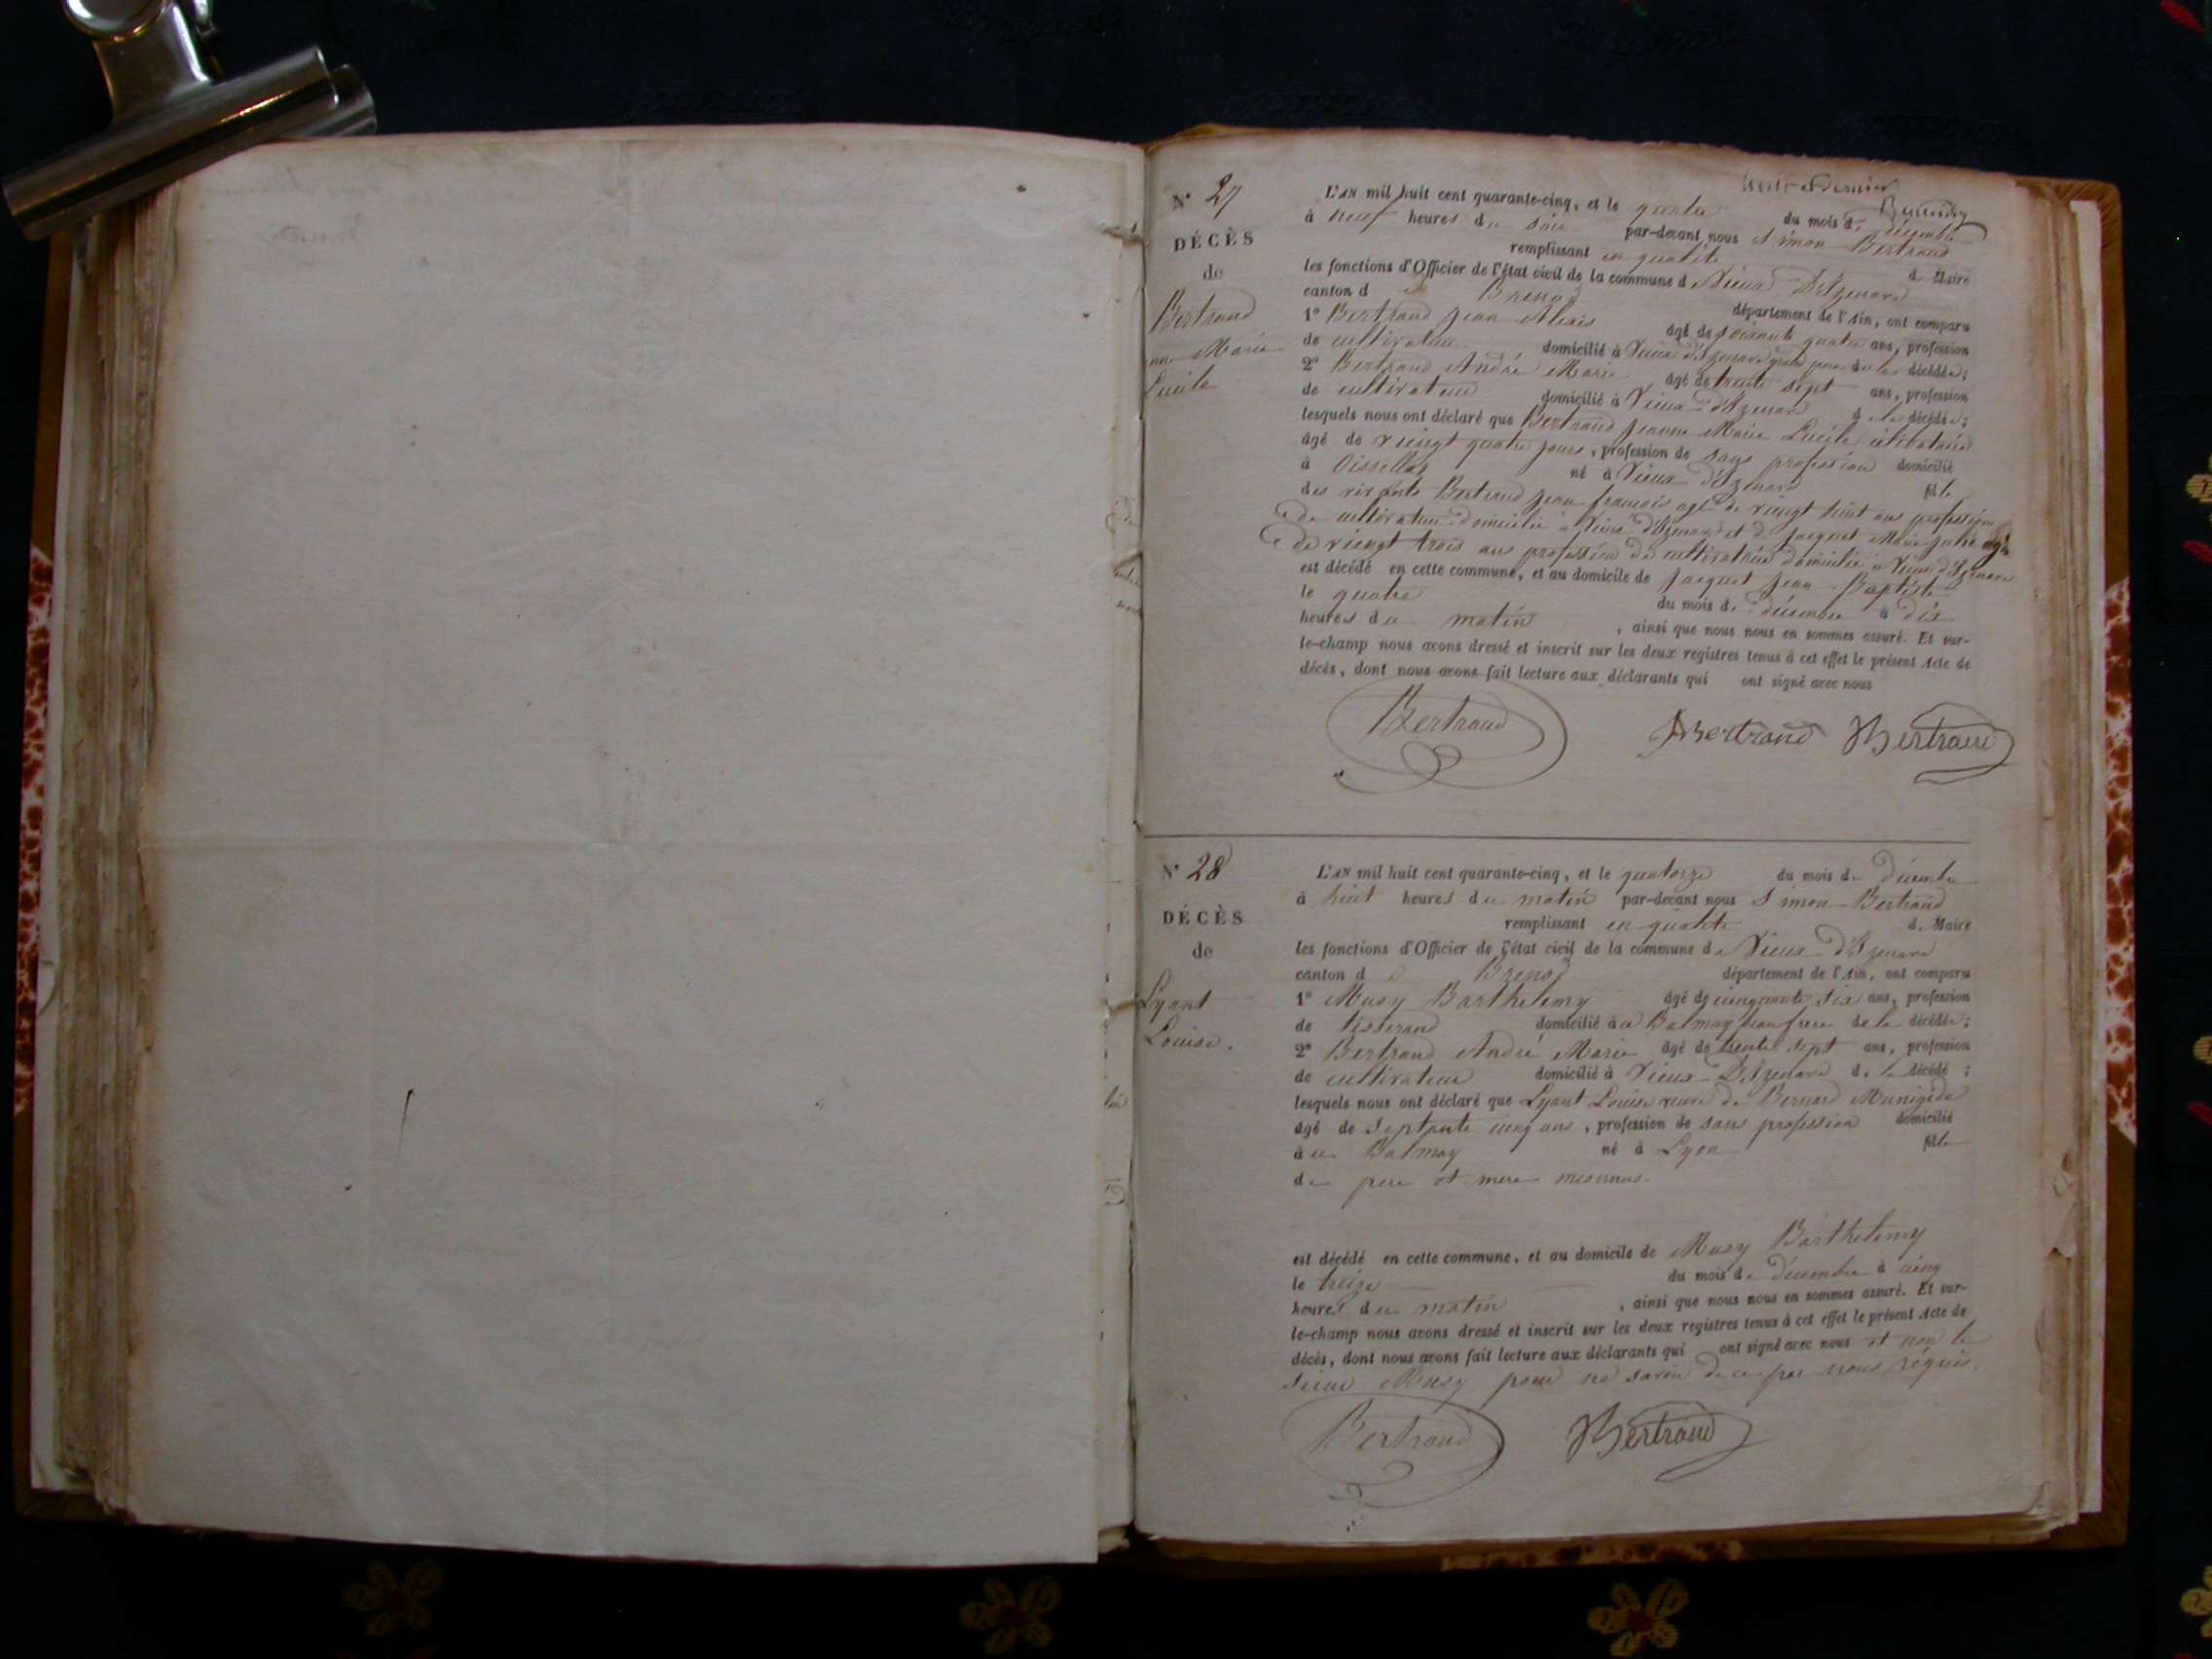 N° 27
DÉCÈS
de
Bertrand
Marie
Lucile
L'AN mil huit cent quarante-cinq, et le quatre du mois de décembre
à neuf heures du soir par-devant nous Simon Bertrand
remplissant en qualité de Maire
les fonctions d'Officier de l'état civil de la commune de Vieux D'Izenave
canton d Brenod département de l'Ain, ont comparu
1° Bertrand Jean Alexis âgé de soixante quatre ans, profession
de cultivateur domicilié à Vieux d'Izenave grand père de la décédée;
2° Bertrand André Marie âgé de trente sept ans, profession
de cultivateur domicilié à Vieux d'Izenave d la décédée;
lesquels nous ont déclaré que Bertrand Jeanne Marie Lucile célibataire
âgé de viengt quatre jours, profession de sans profession domicilié
à Oissellaz né à Vieux d'Izenave fille
des vivants Bertrand Jean françois agé de viengt huit ans profession
de cultivateur domicilié à Vieux d'Izenave et d Jacquet Marie Julie agée
de viengt trois ans profession de cultivatrice domicilié à Vieux d'Izenave
est décédé en cette commune, et au domicile de Jacquet Jean Baptiste
le quatre du mois de décembre à dix
heures du matin, ainsi que nous nous en sommes assuré. Et sur-
le-champ nous avons dressé et inscrit sur les deux registres tenus à cet effet le présent Acte de
décès, dont nous avons fait lecture aux déclarants qui ont signé avec nous
Bertrand Bertrand Bertrand
N° 28
DÉCÈS
de
Lyant
Louise.
L'AN mil huit cent quarante-cinq, et le quatorze du mois de décembre
à huit heures du matin par-devant nous Simon Bertrand
remplissant en qualité de Maire
les fonctions d'Officier de l'état civil de la commune de Vieux D'Izenave
canton d Brenod département de l'Ain, ont comparu
1° Musy Barthelemy âgé de cinquante six ans, profession
de tisserand domicilié à u Balmay beau frere de la décédée;
2° Bertrand André Marie âgé de trente sept ans, profession
de cultivateur domicilié à Vieux D'Izenave de la décédé;
lesquels nous ont déclaré que Lyant Louise veuve de Bernard
âgé de septante cinq ans, profession de sans profession domicilié
à u Balmay né à Lyon fille
de pere et mere inconnus.
est décédé en cette commune, et au domicile de Musy Barthelemy
le treize du mois de décembre à cinq
heures du matin, ainsi que nous nous en sommes assuré. Et sur-
le-champ nous avons dressé et inscrit sur les deux registres tenus à cet effet le présent Acte de
décès, dont nous avons fait lecture aux déclarants qui ont signé avec nous et non le
sieur Musy pour ne savoir de ce par nous requis.
Bertrand Bertrand